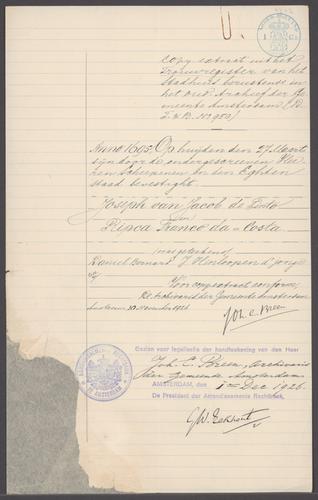 Copy extract uit het
Trouwregister van het
Stadhuis berustende in
het oud-Archief der Ge
meente Amsterdam (D.
Anno 1695: Op huijden den 27 Maart
zijn door de ondergeschreven Hee
ren Schepenen in den Egten
staad bevestight.
Joseph van Jacob de Pinto
en
Ripca Franco da Costa.
(was getekend)
Daniel Bernard J. Hinloopen d'jonge
Voor copy extract conform,
De Archivaris der Gemeente Amsterdam
Amsterdam 30 November 1926
Joh. C. Breen
Gezien voor legalisatie der handteekening van den Heer
Joh. C. Breen, Archivaris
der Gemeente Amsterdam
AMSTERDAM, den 1sten Dec 1926.
De President der Arrondissements-Rechtbank,